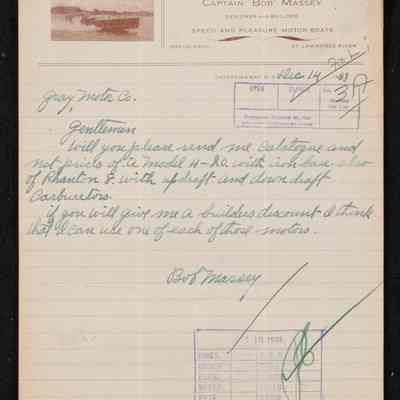 CAPTAIN "BOB" MASSEY
DESIGNER AND BUILDER
SPEED AND PLEASURE MOTOR BOATS
ST. LAWRENCE RIVER
Dec 14
Gray Motor Co.
Gentlemen
Will you please send me Catalogue and
net prices of a Model 4-        with iron base also
of Phantom 8. with updraft and down draft
Carburetors.
if you will give me a builders discount I think
that I can use one of each of those motors.
Bob Massey